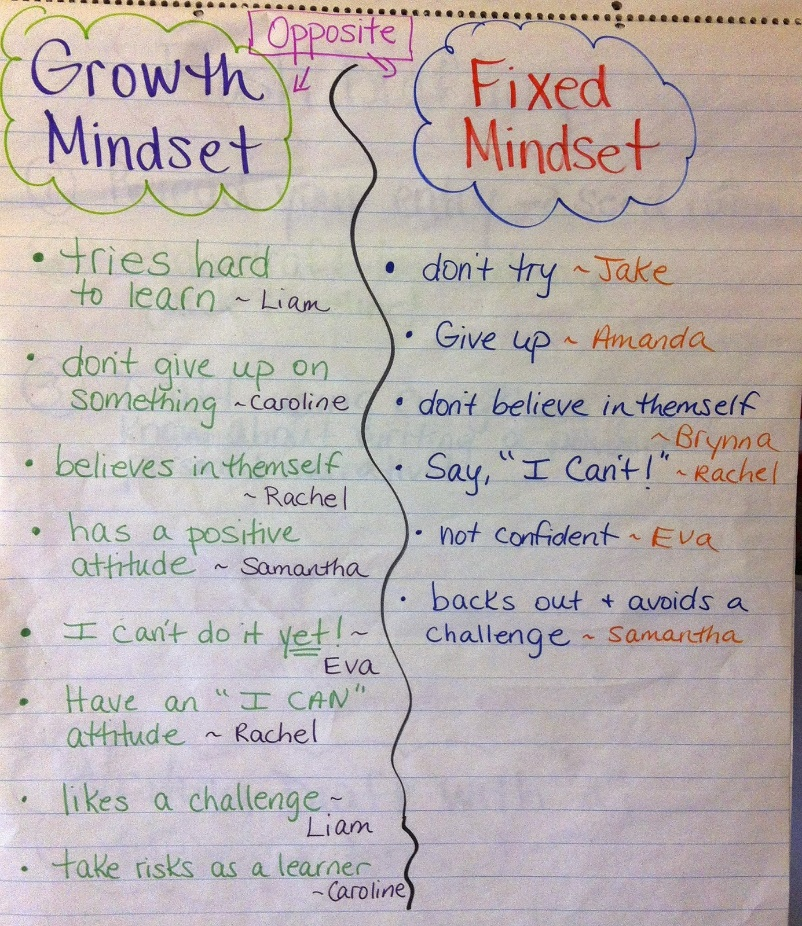 Opposite
Growth
Mindset
• tries hard
to learn ~ Liam
• don't give up on
something ~Caroline
• believes in themself
~ Rachel
• has a positive
attitude ~ Samantha
• I can't do it yet! ~
Eva
• Have an "I CAN"
attitude ~ Rachel
• likes a challenge ~
Liam
• take risks as a learner
~Caroline
Fixed
Mindset
• don't try ~ Jake
• Give up ~ Amanda
• don't believe in themself
~ Brynna
• Say, "I Can't!" ~ Rachel
• not confident ~ Eva
• backs out + avoids a
challenge ~ Samantha